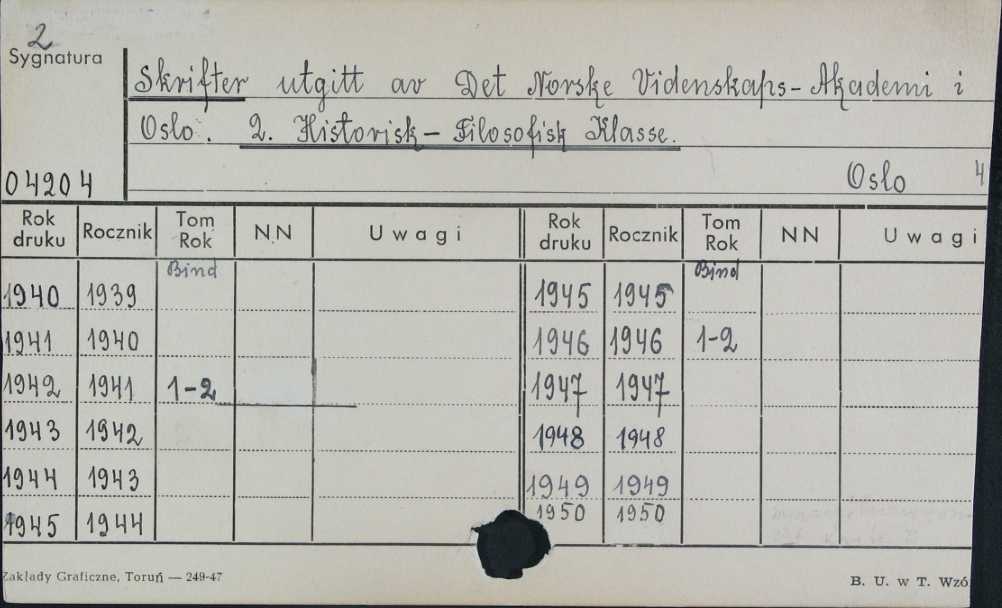 2
Sygnatura
Skrifter utgitt av Det Norske Videnskaps-Akademi i
Oslo. 2. Historisk-Filosofisk Klasse.
04204
Oslo 4
Rok druku Rocznik Tom Rok NN Uwagi Rok druku Rocznik Tom Rok NN Uwagi
Bind Bind
1940 1939 1945 1945
1941 1940 1946 1946 1-2
1942 1941 1-2 1947 1947
1943 1942 1948 1948
1944 1943 1949 1949
1945 1944 1950 1950
Zakłady Graficzne, Toruń — 249-47 B. U. w T.